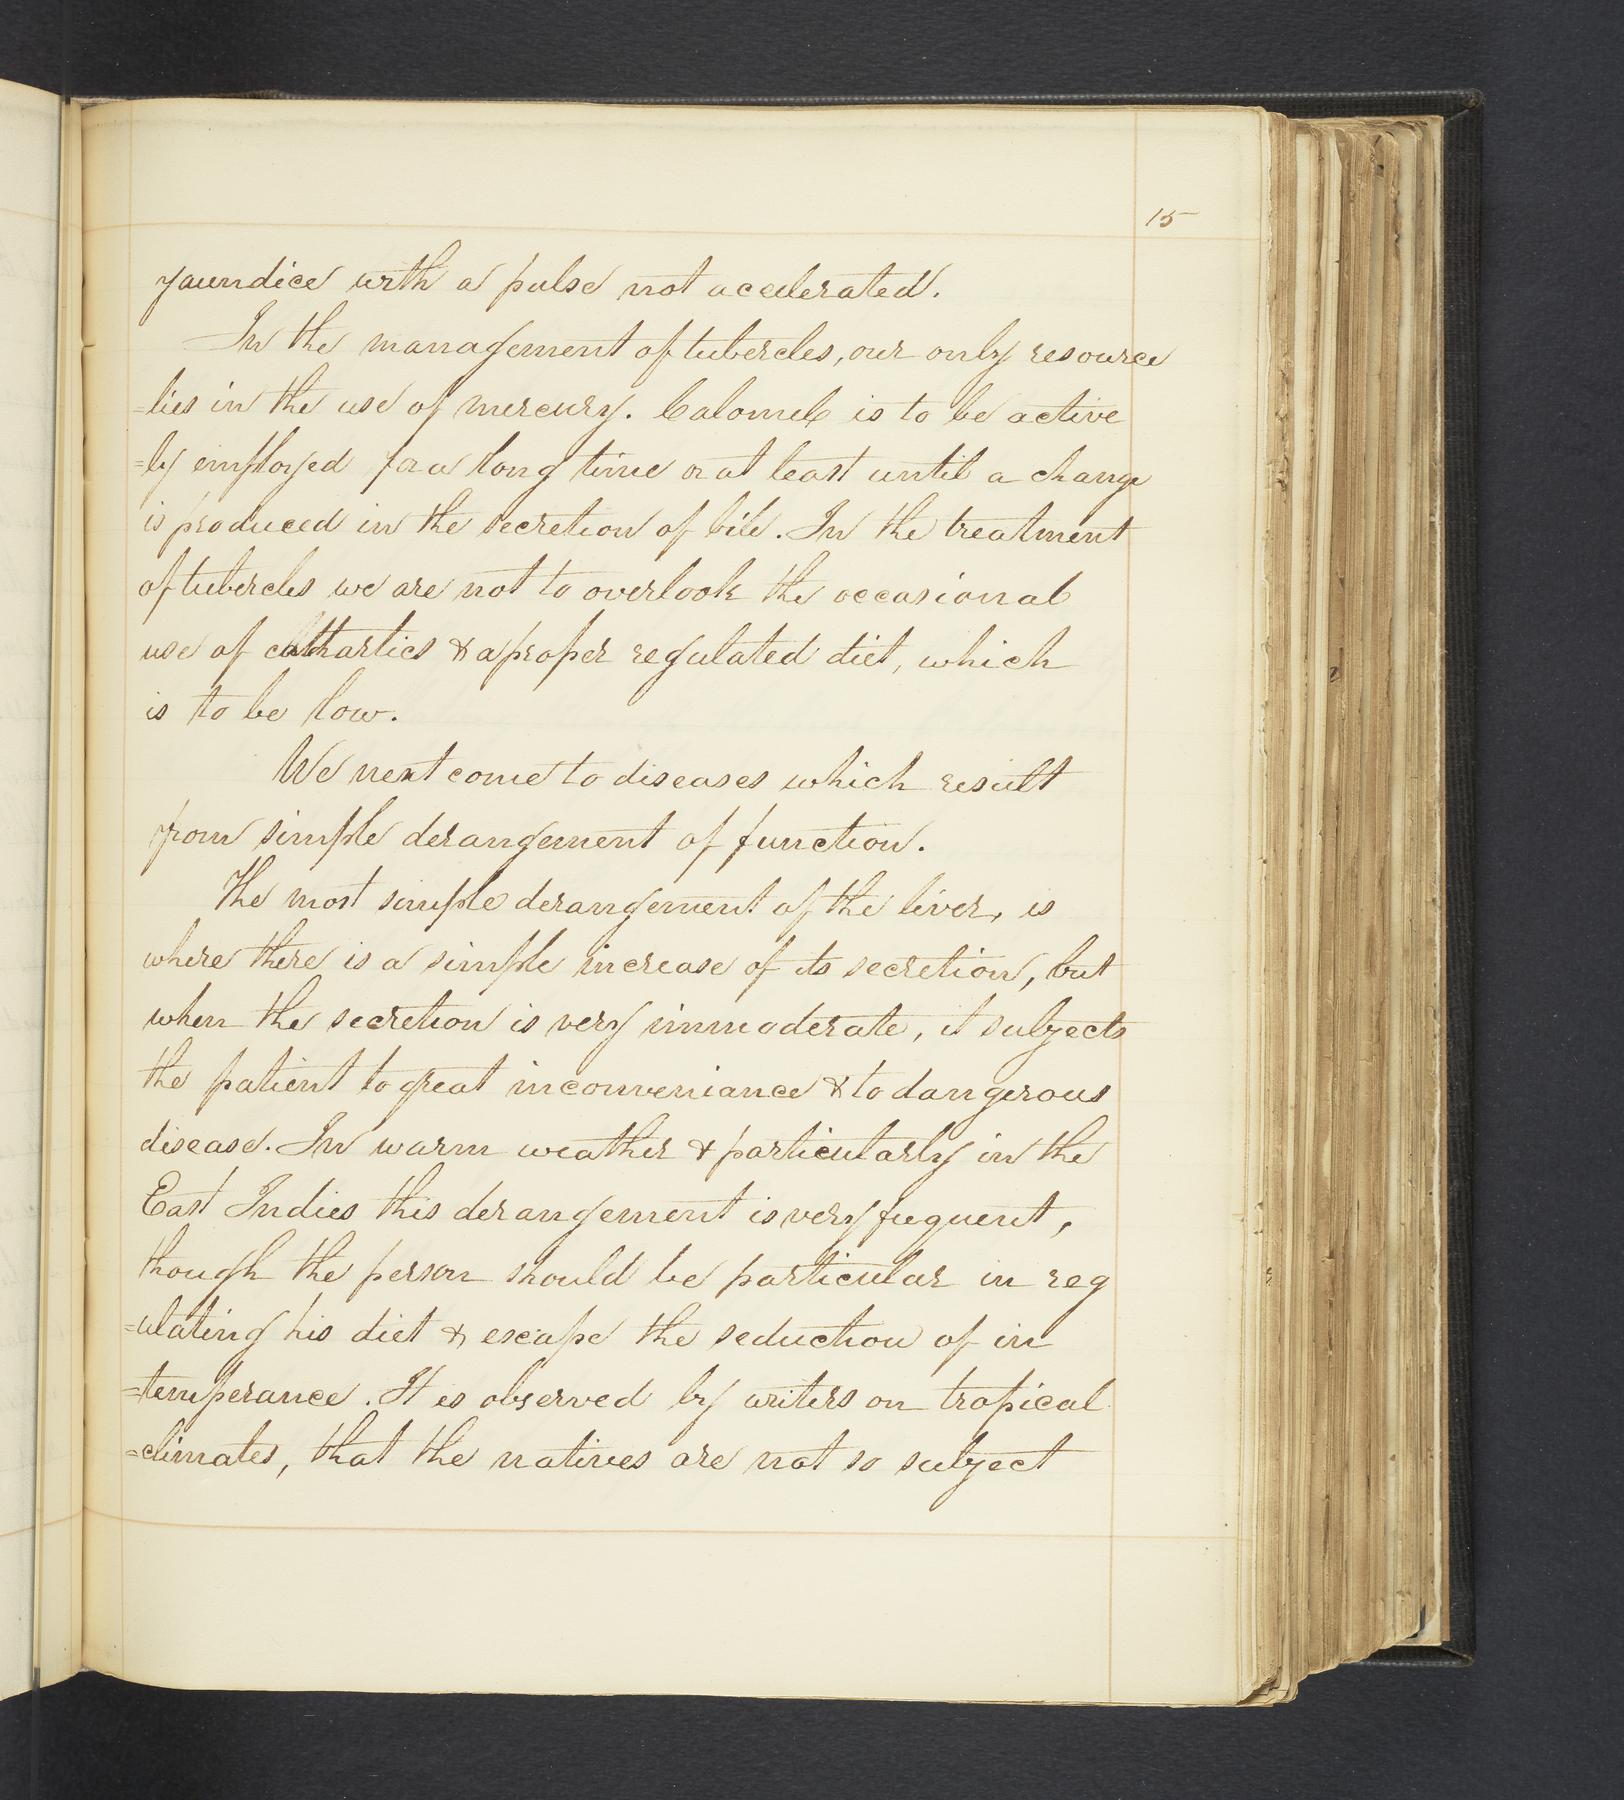 15
jaundice with a pulse not accelerated.
In the management of tubercles, our only resource
=lies in the use of mercury. Calomel is to be active
=ly employed for a long time or at least until a change
is produced in the secretion of bile. In the treatment
of tubercles we are not to overlook the occasional
use of cathartics & a proper regulated diet, which
is to be low.
We next come to diseases which result
from simple derangement of function.
The most simple derangement of the liver, is
where there is a simple increase of its secretion, but
when the secretion is very immoderate, it subjects
the patient to great inconveniance & to dangerous
disease. In warm weather & particularly in the
East Indies this derangement is very frequent,
though the person should be particular in reg
=ulating his diet & escape the seduction of in
=temperance. It is observed by writers on tropical
=climates, that the natives are not so subject